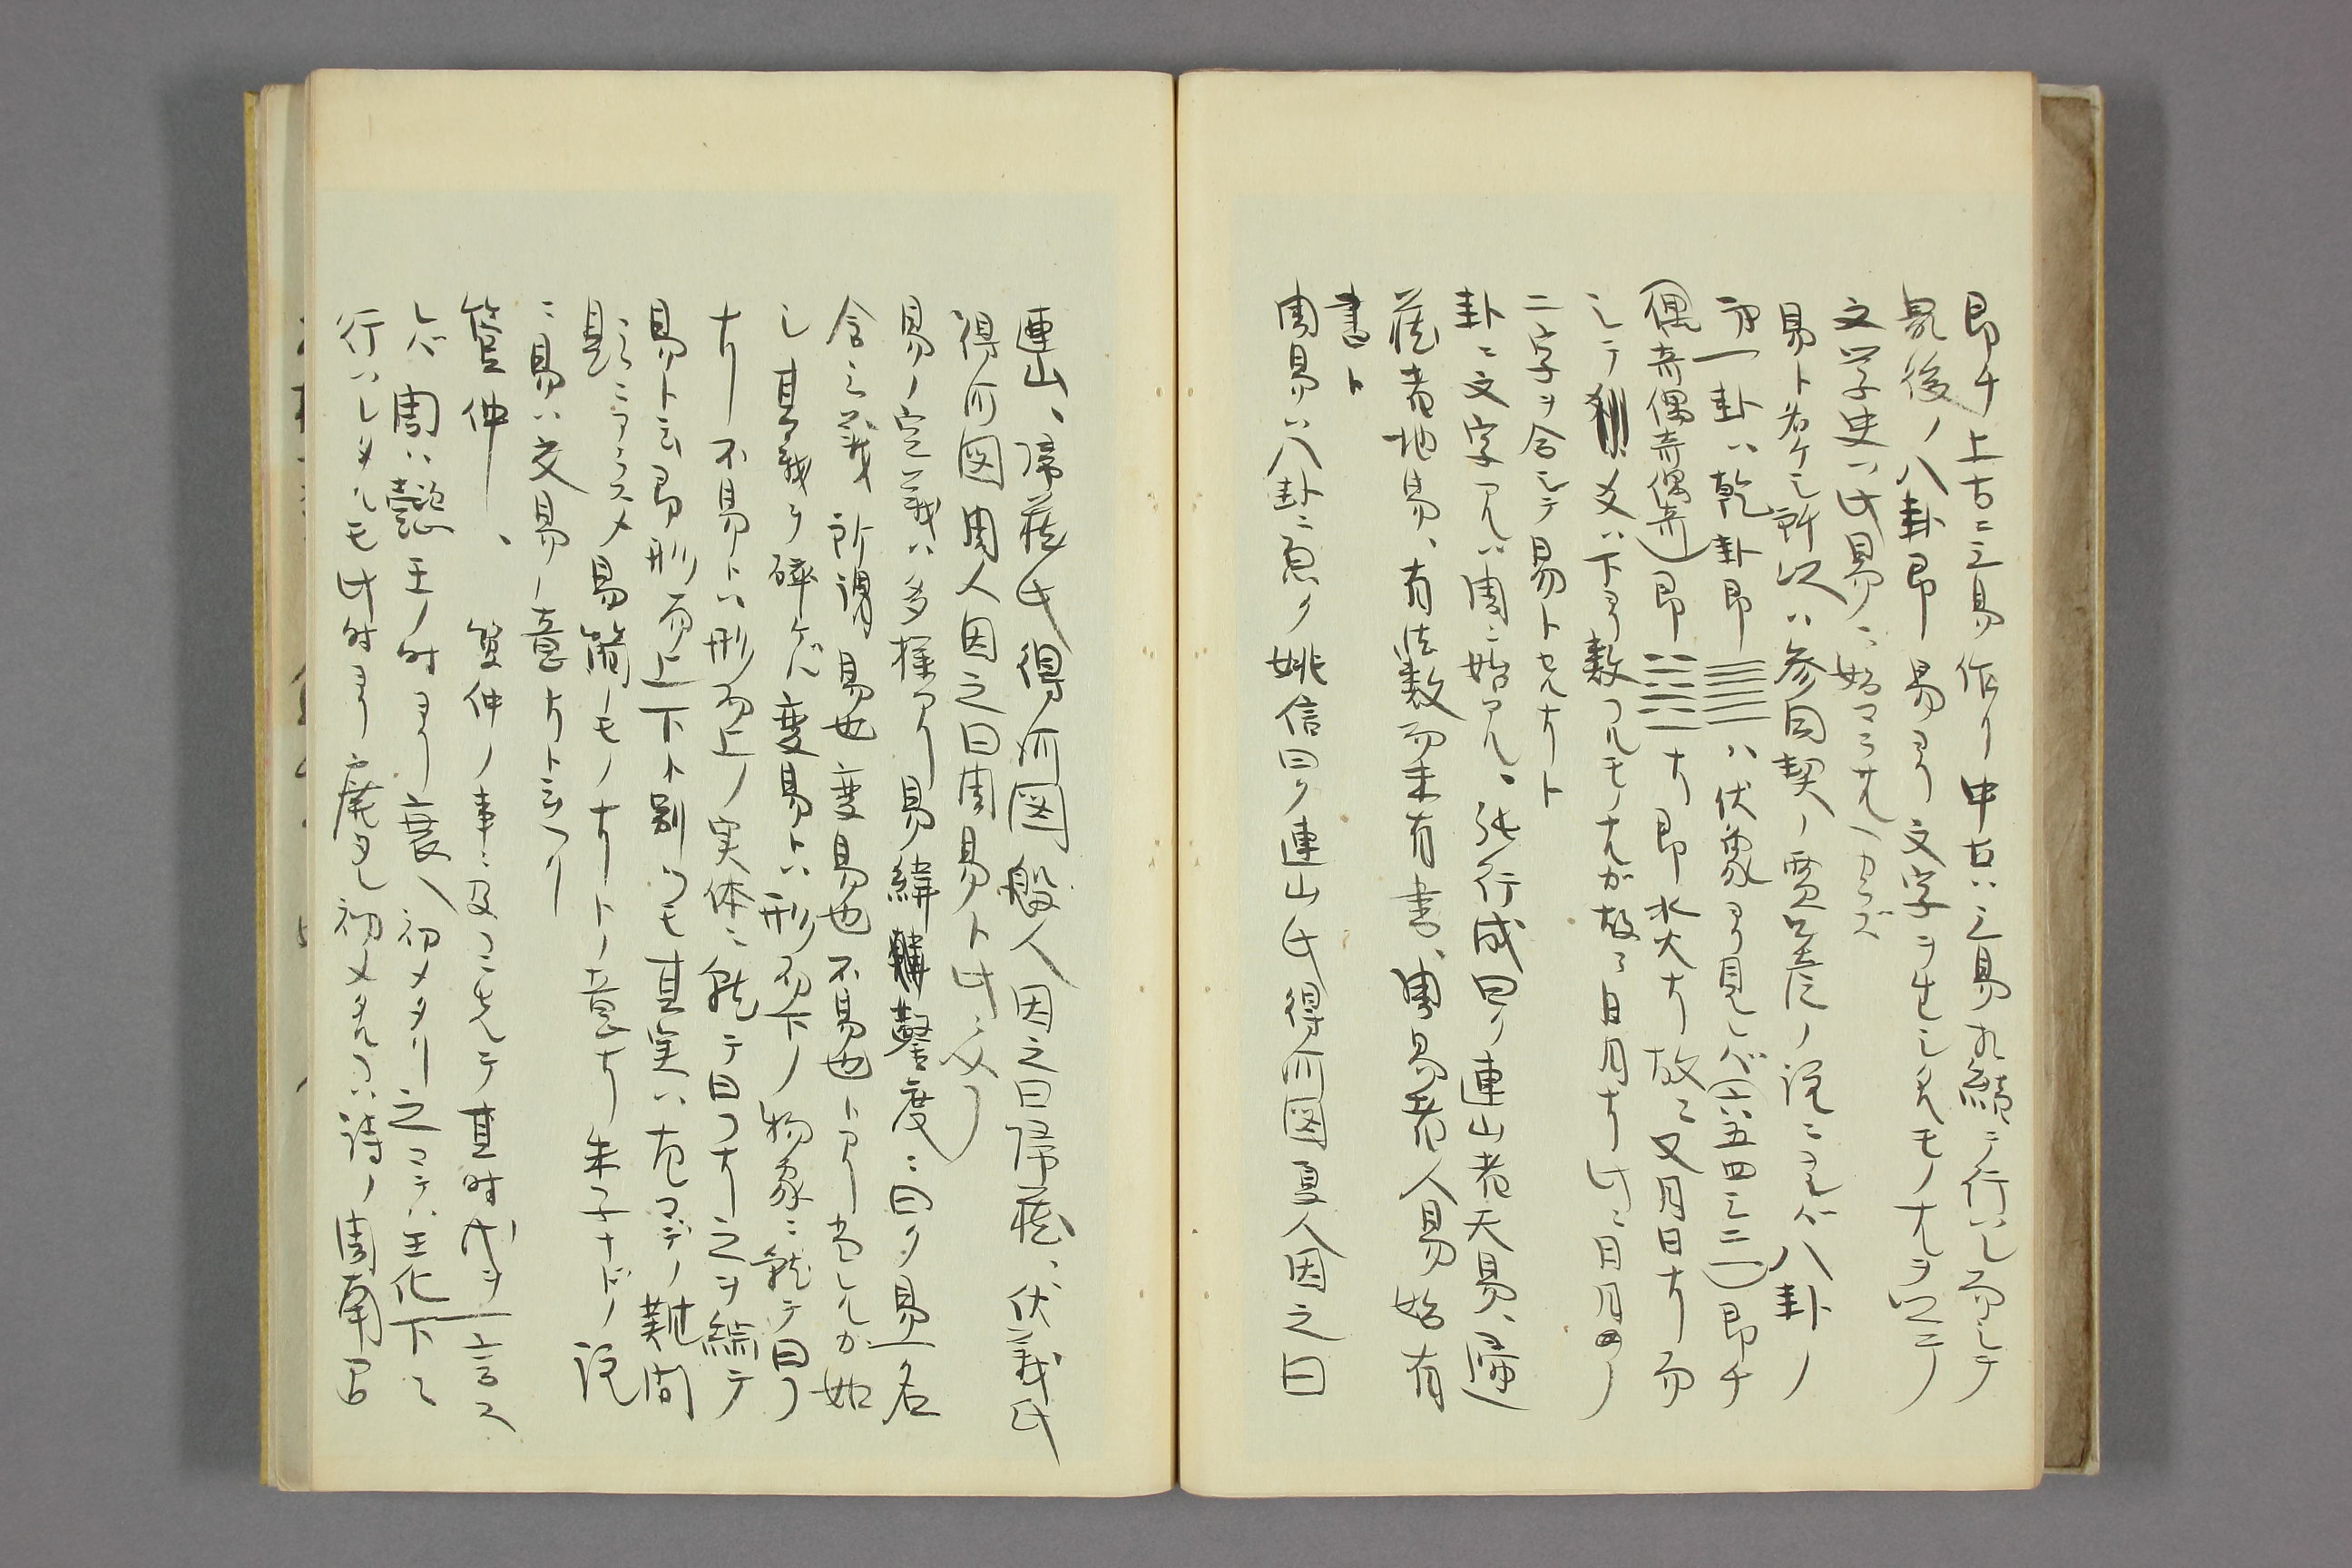 即チ上古ニ三易作リ中古ハ三易相続テ行ハレ而シテ
最後ノ八卦即易ヨリ文字ヲ生シタルモノナラン而シテ
文学史ハ此易ニ始マラザルヘカラズ
易ト名ケシ所以ハ参同契ノ賈彦ノ説ニヨレバ八卦ノ
第一卦ハ乾卦即☰☰ハ伏象ヨリ見レバ(六五四三二一)即チ
(偶奇偶奇偶奇)即䷾ナリ即水火ナリ故ニ又月日ナリ而
シテ爻ハ下ヨリ数フルモノナルガ故ニ日月ナリ此ニ日月ノ
二字ヲ合シテ易トセルナリト
卦ニ文字アルハ周ニ始マル、張行成曰ク連山者天易、歸
蔵者地易、有法数而未有書、周易者人易始有
書ト
周易ハ八卦ニ係ク姚信曰ク連山氏得河図夏人因之曰
連山、帰蔵氏得河図殷人因之曰帰蔵、伏羲氏
得河図周人因之曰周易ト
易ノ定義ハ多様アリ易緯乾鑿度ニ曰ク易一名
含三義所謂易也変易也不易也トアリ
シ其義ヲ砕ケバ変易トハ形而下ノ物象ニ就テ曰フ
ナリ不易トハ形而上ノ実体ニ就テ曰フナリ之ヲ綜テ
易ト云即形而上下ト別ツモ其実ハ
易簡ノモノナリトノ意ナリ朱子ナドノ説
ニ易ハ交易ノ意ナリト云フアリ
管仲、管仲ノ事ニ及フニ先テ其時代ヲ一言ス
レバ周ハ懿王ノ時ヨリ衰ヘ初メタリ之マテハ王化下ニ
行ハレタルモ此時ヨリ廃タレ初メタルハ詩ノ周南召